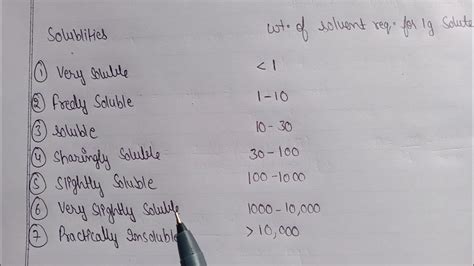 Solublities wt. of solvent req. for 1g Solute
① Very Soluble < 1
② Freely Soluble 1-10
③ Soluble 10-30
④ Sharingly Soluble 30-100
⑤ Slightly Soluble 100-1000
⑥ Very Slightly Soluble 1000-10,000
⑦ Practically Insoluble > 10,000